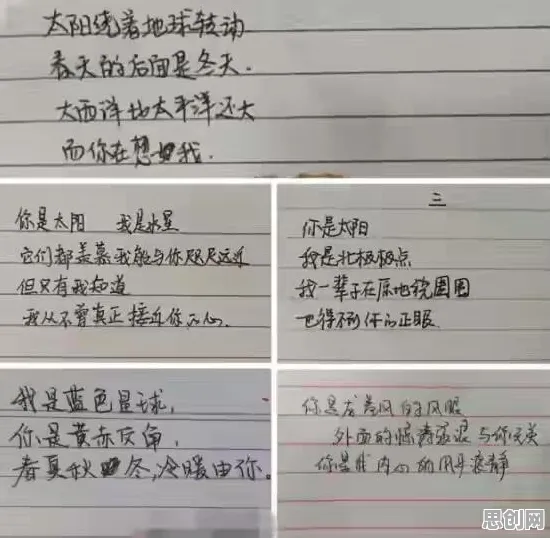 太阳绕着地球转动
春天的后面是冬天.
大西洋比太平洋还大
而你在想我.
你是太阳 我是水星
它们都羡慕我能与你咫尺远近
但只有我知道
我从不曾真正接近你的心.
三
你是太阳
我是北极极点
我一辈子在原地绕圈圈
也得不到你的正眼.
我是蓝色星球,
你是黄赤交角,
春夏秋冬,冷暖由你.
你是龙卷风的风眼
外面的惊涛骇浪与你无关
你是我内心的风平浪静
思创网